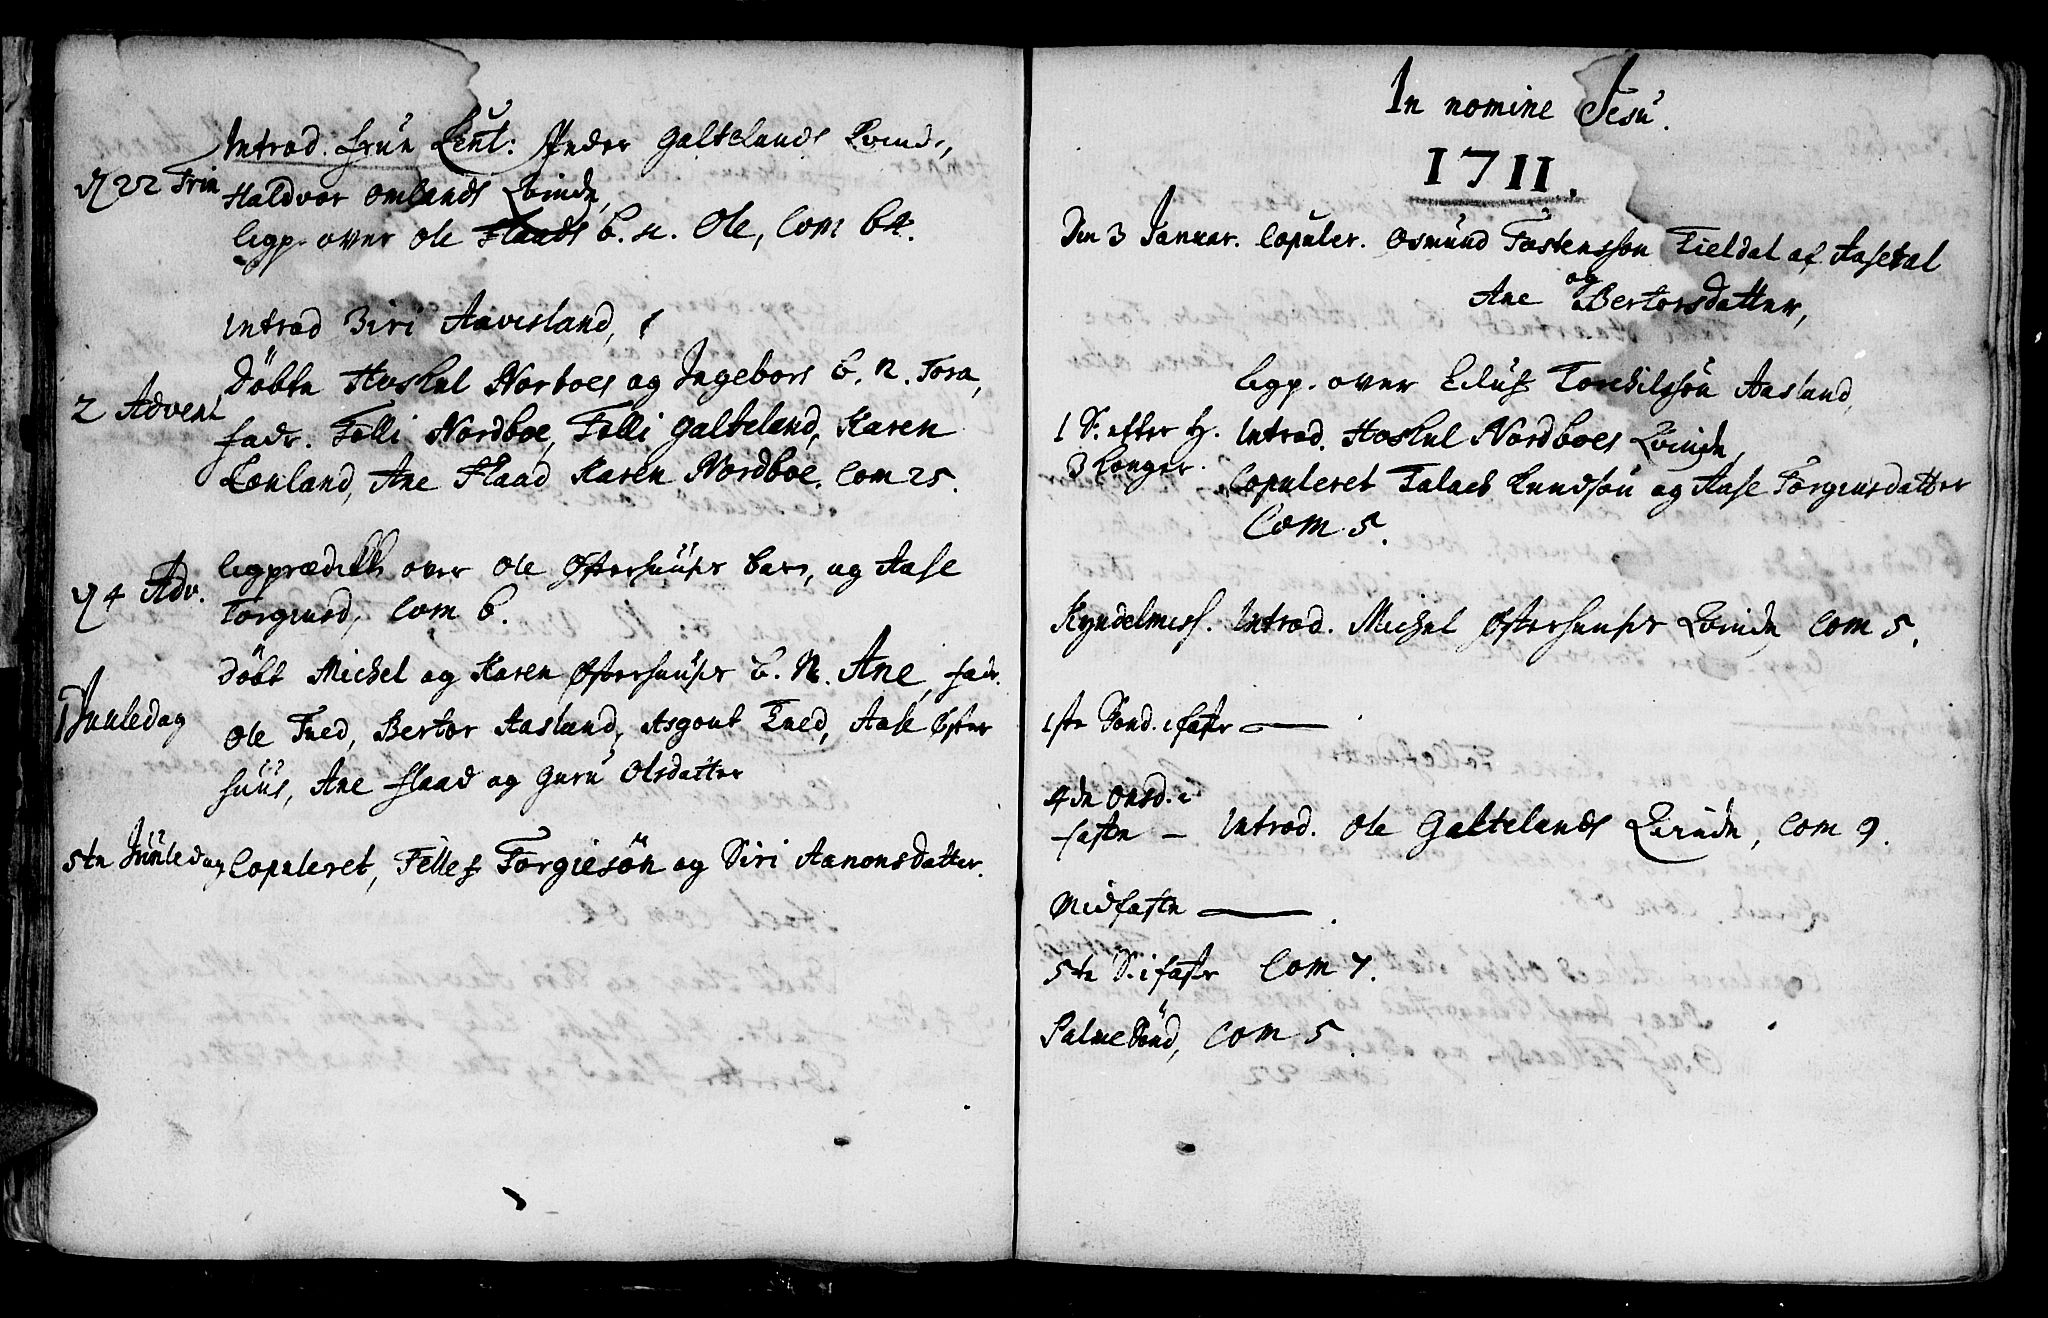 Introd. fruu Leut: Peder Galtelands Kvinde,
d 22 Trin
Haldvor Omlands Kvinde,
ligp. over Ole Flaads b. n. Ole, Com 64.
Introd Siri Aavesland,
2 Advent
Döbte Hoskel Norboes og Ingebors b. n. Tora,
fadr. Tölli Nordboe, Tölli Galteland, Karen
Lonland, Ane Flaad Karen Nordboe. Com 25.
d 4 Adv.
ligprædik over Ole Østerhuuses barn, og Aase
Torgiusd, Com 6.
1 Juuledag
döbt Michel og Karen Østerhuuses b. N. Ane, fadr.
Ole Tved, Bertor Aasland, Asgout Tved, Aase Øster
huus, Ane flaad og Guru Olsdatter
5te Juuledag Copuleret, Tellef Torgiesön og Siri Aanonsdatter.
In nomine Jesu.
1711.
Den 3 Januar. Copuler. Osmund Tostensson Tieldal af Aasetal
og
Ane Bertorsdatter,
ligp. over Eiluf Torkilssön Aasland,
1 S. efter H. Introd. Hoskel Nordboes Kvinde,
3 Konger. Copuleret Talaes Knudsön og Aase Torgiusdatter
Com 5.
Kyndelmess. Introd. Michel Østerhuuses Kvinde Com 5.
1ste Sönd. i faste
4de Onsd. i
faste – Introd. Ole Galtelands Kvinde, Com 9.
Midfaste
5te S. i faste Com 7.
Palme Sönd, Com 5.